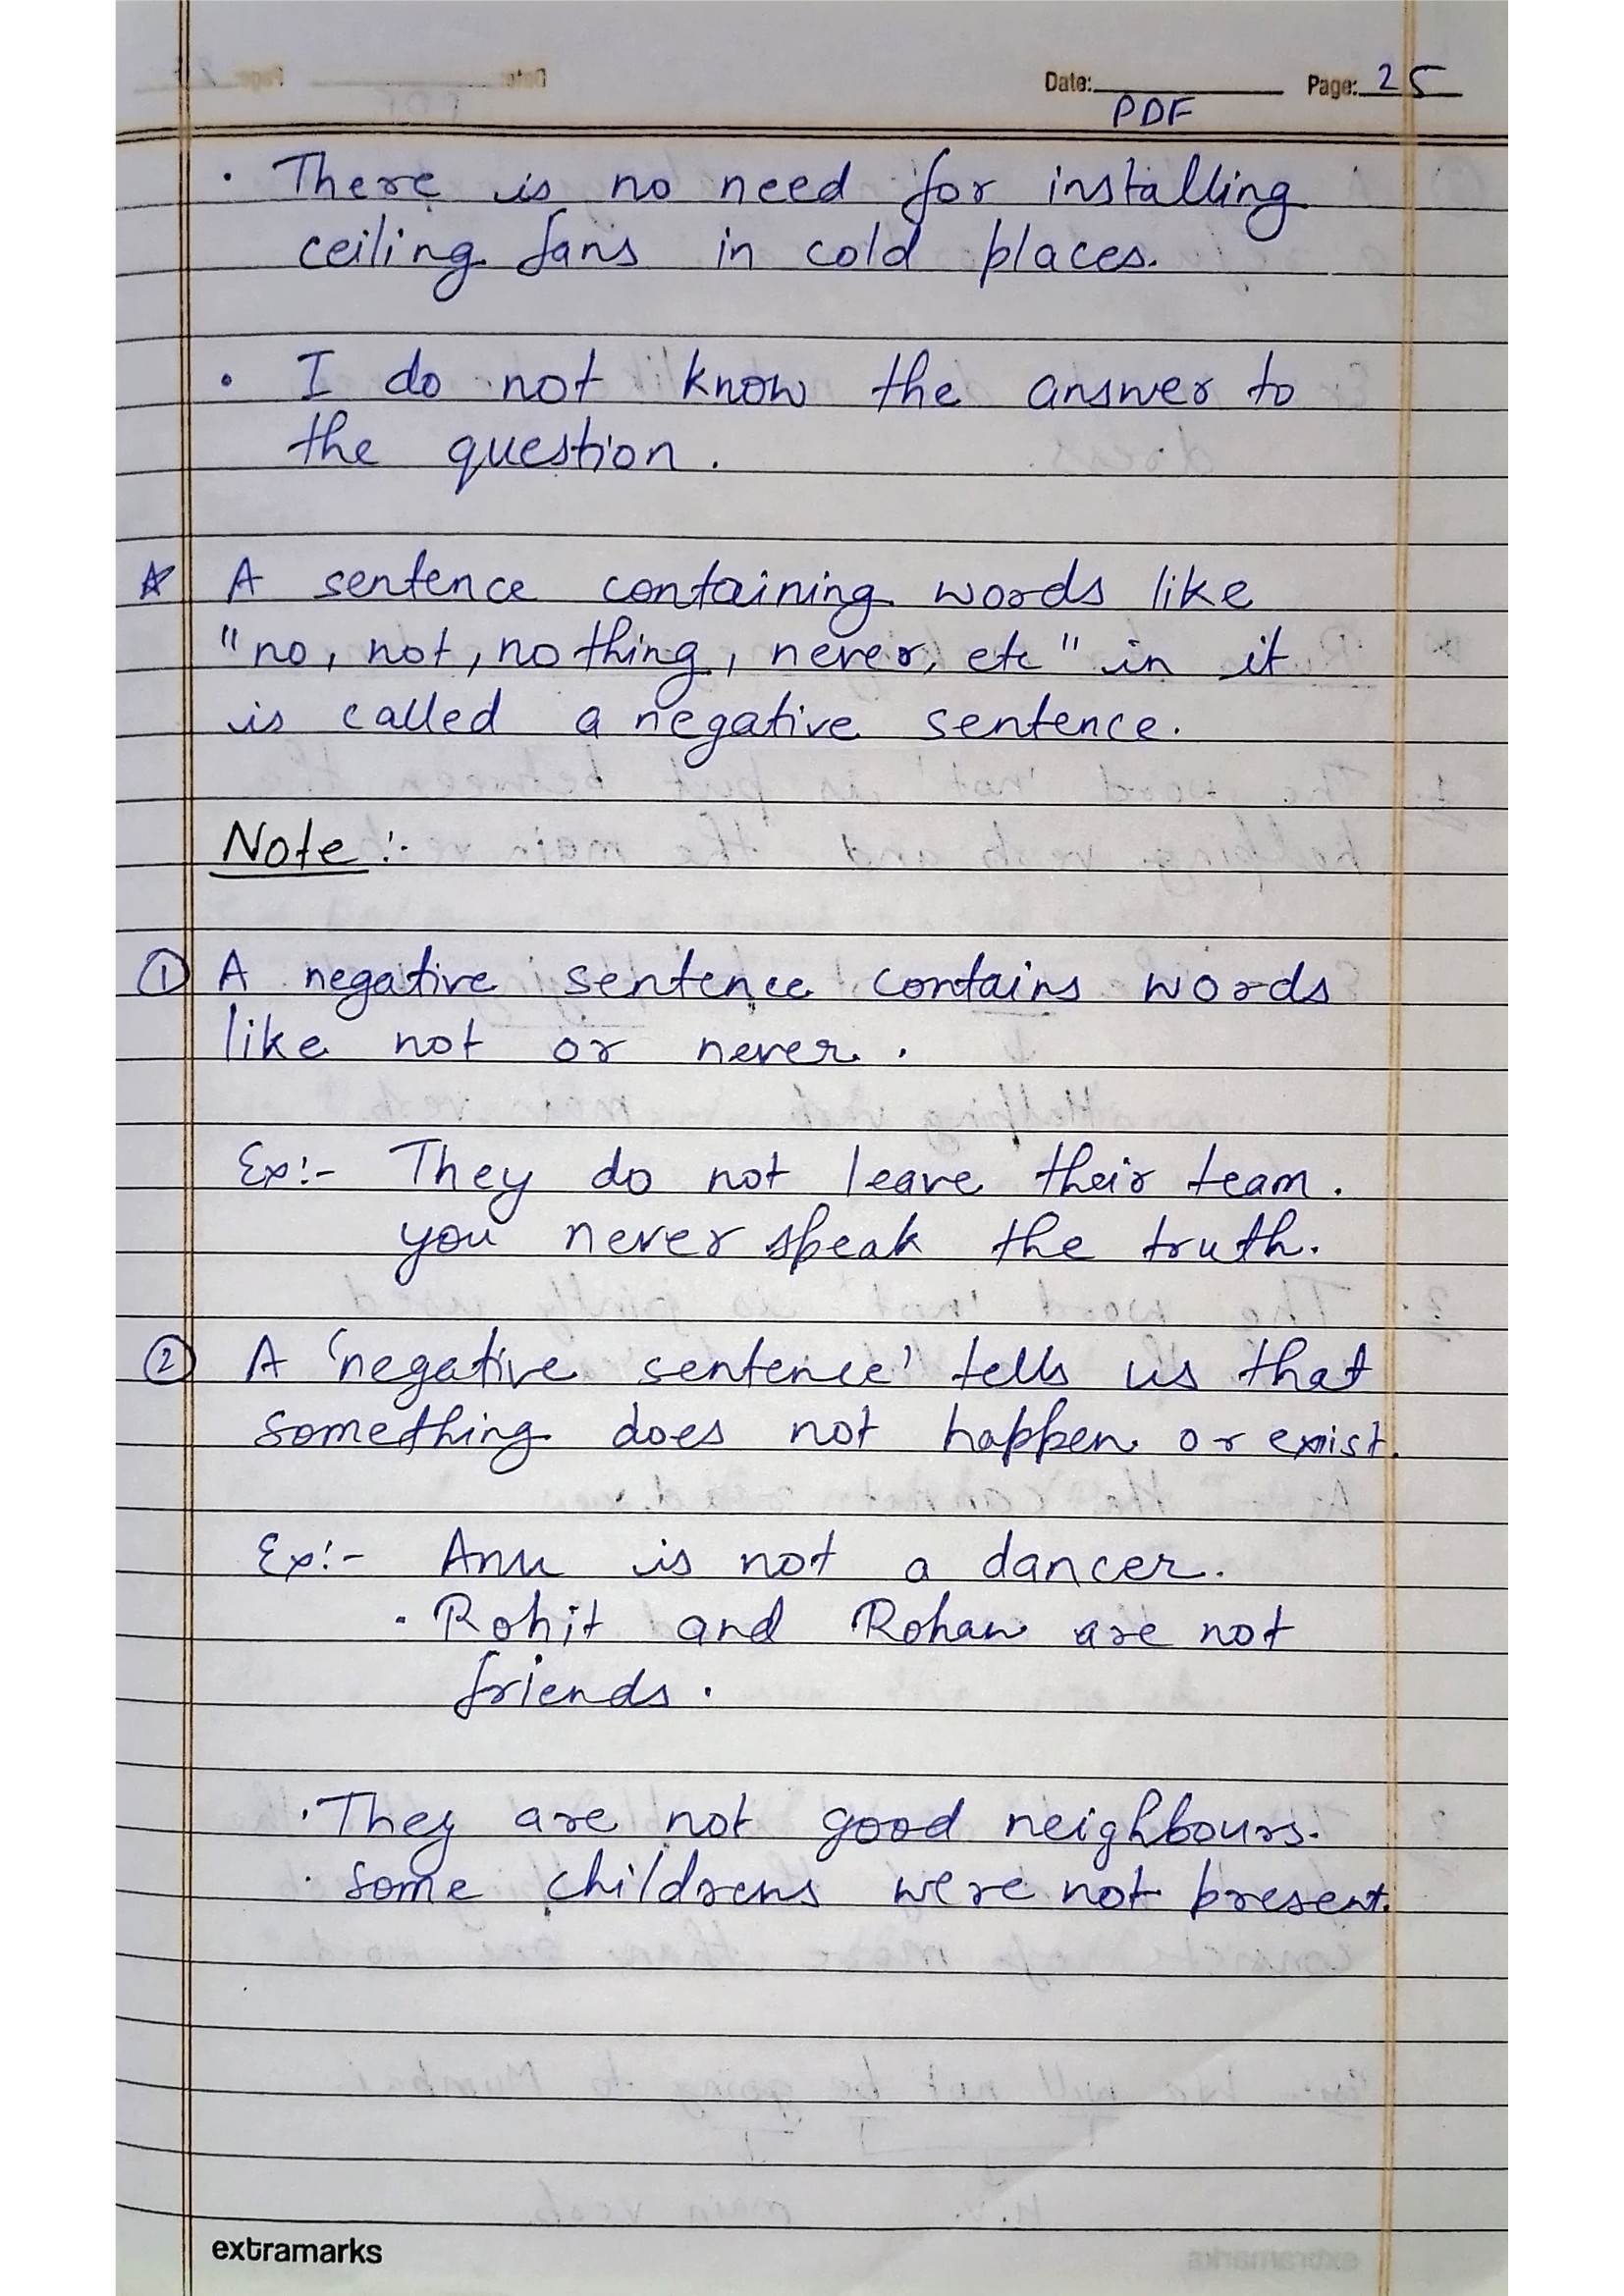 Date: Page: 25
PDF
· There is no need for installing
ceiling fans in cold places.
· I do not know the answer to
the question.
☆ A sentence containing words like
"no, not, nothing, never, etc" in it
is called a negative sentence.
Note :-
① A negative sentence contains words
like not or never.
Ex:- They do not leave their team.
you never speak the truth.
② A 'negative sentence' tells us that
something does not happen or exist.
Ex:- Anu is not a dancer.
· Rohit and Rohan are not
friends.
· They are not good neighbours.
· Some childrens were not present.
extramarks